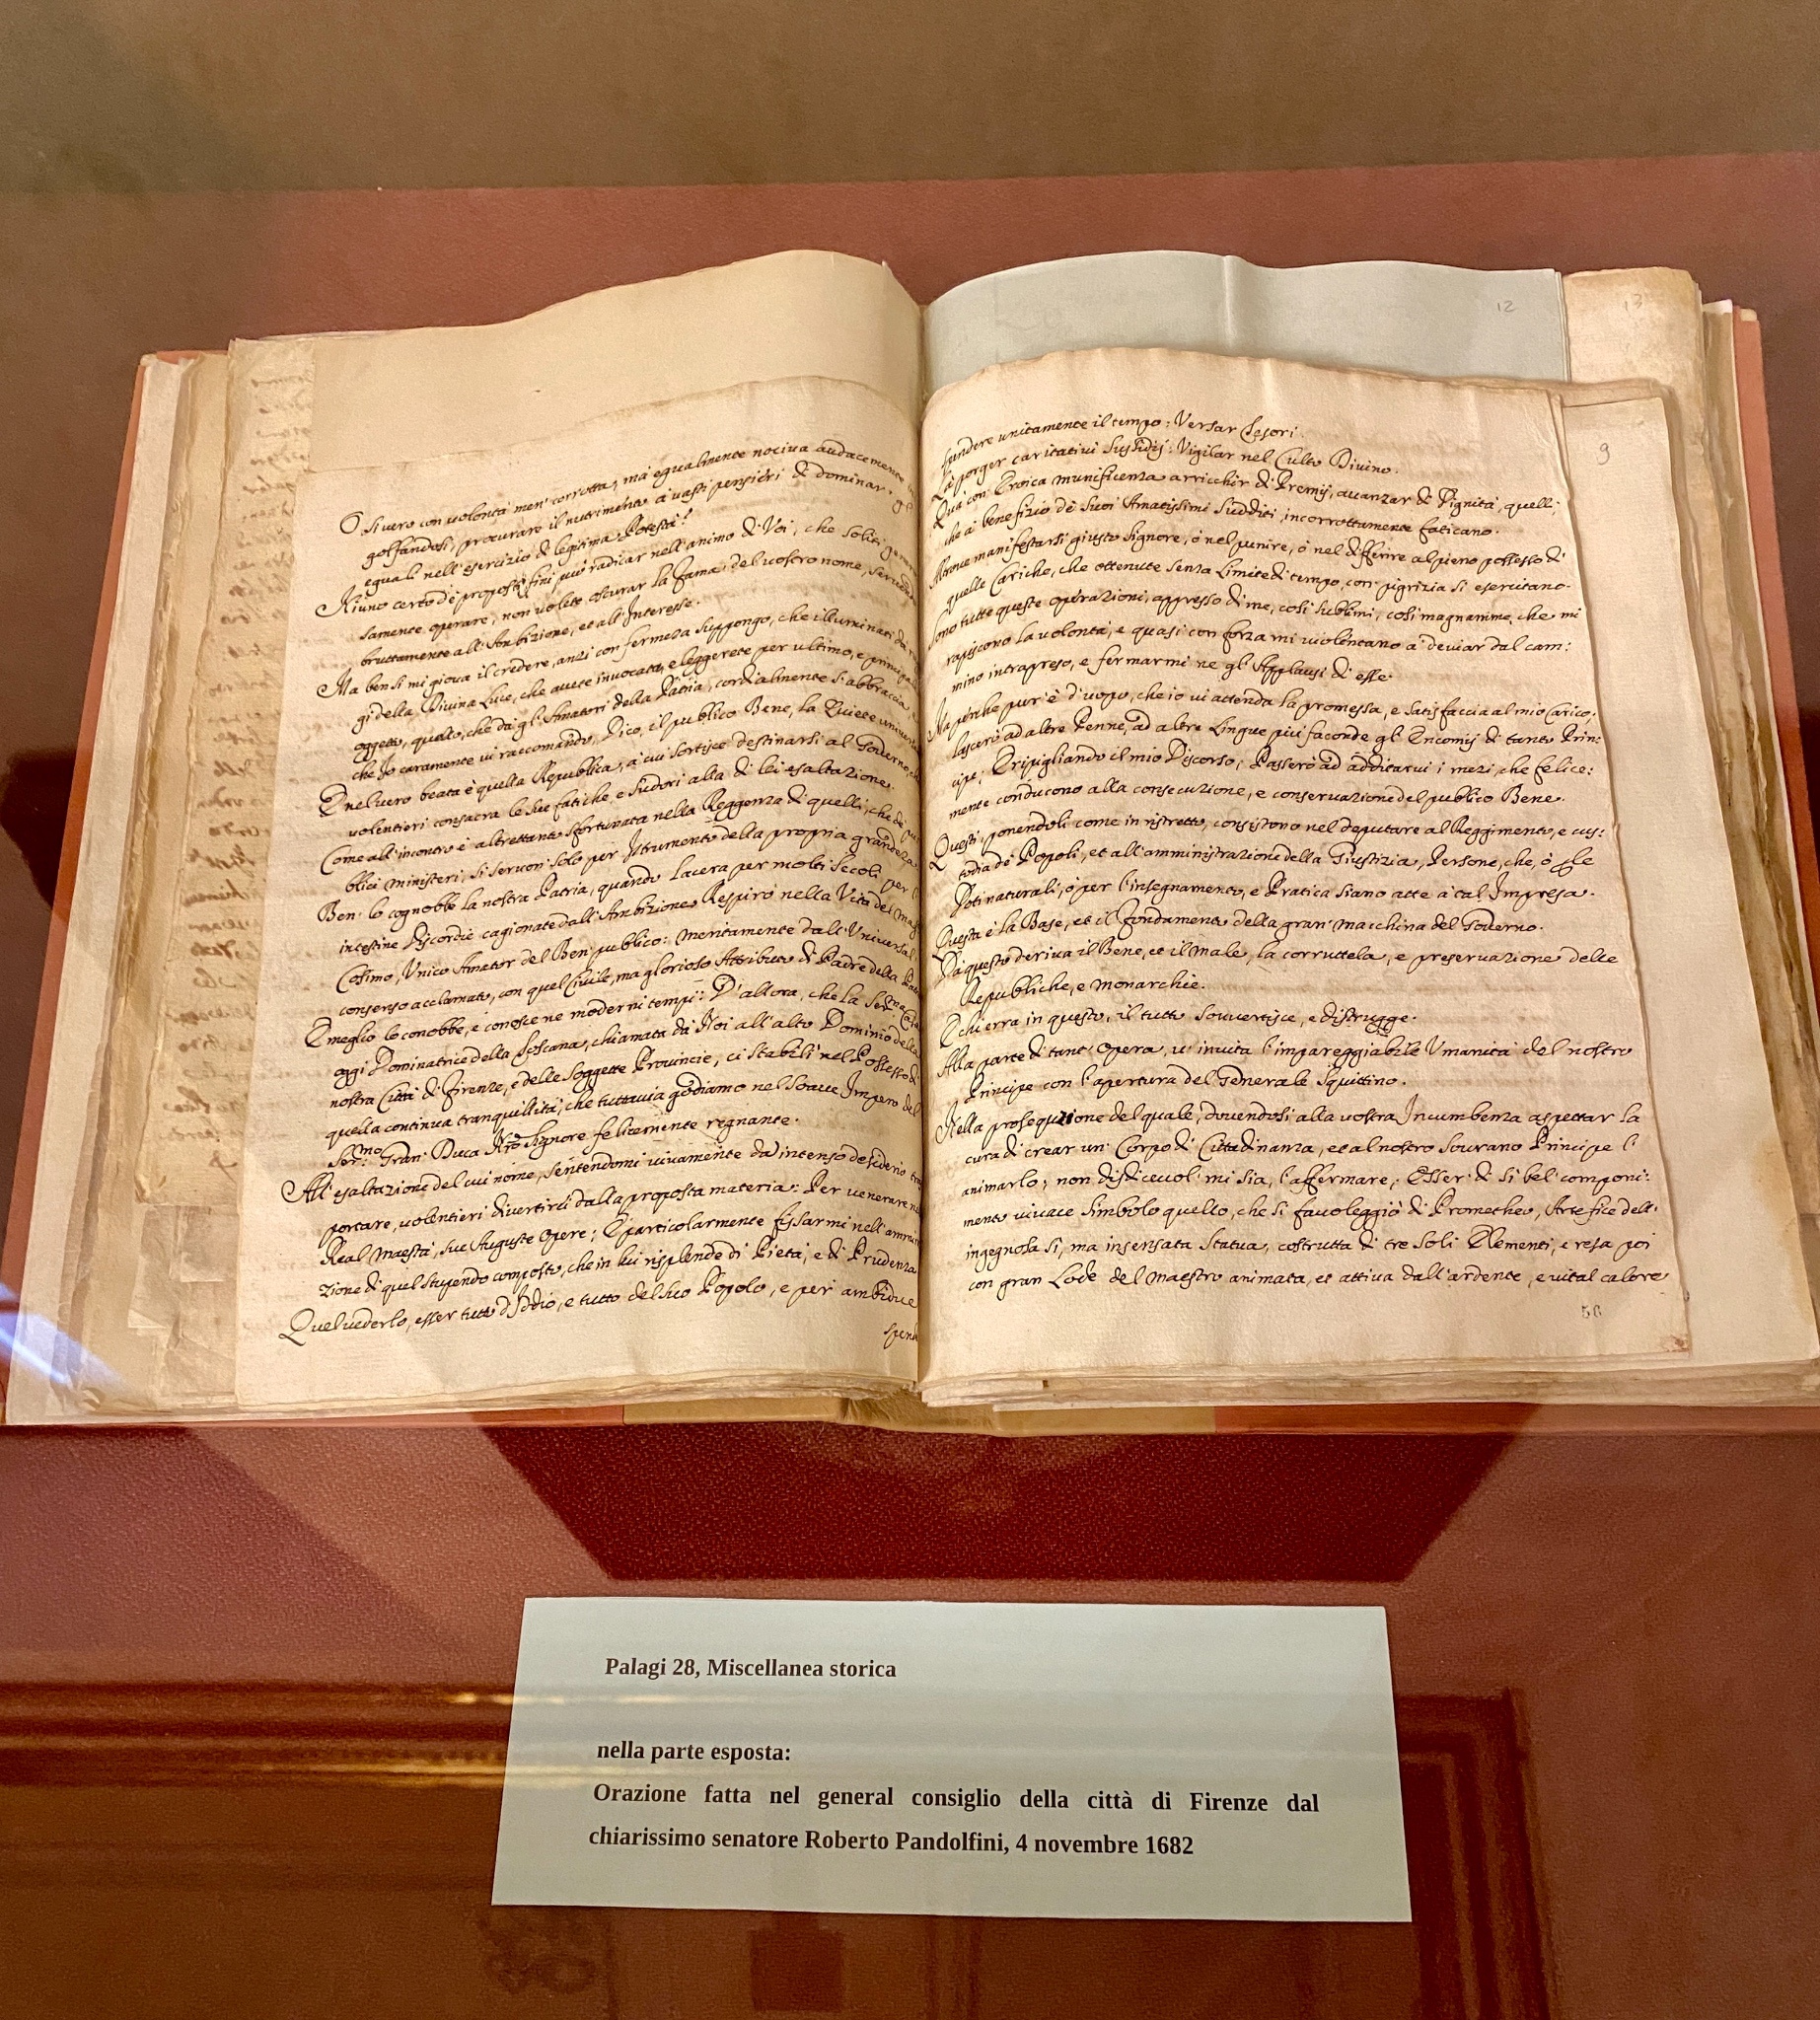 O si vero con volontà men' corrotta, mà egualmente nociva audacemente
golfandosi, procurare il nutrimento à vasti pensieri di dominar' g
eguali nell'esercizio di legitima Potestà?
Niuno certo dè proposti fini può radicar nell'animo di Voi, che soliti
samente operare, non volete oscurar la fama del vostro nome, servendo
bruttamente all'Ambizione, et all'Interesse.
Ma bensì mi giova il credere, anzi con fermeza suppongo, che illuminati da
gi della Divina Luce, che avete invocata, eleggerete per ultimo, e
oggetto, quello, che dà gl'Amatori della Patria, cordialmente s'abbraccia,
che Io caramente vi raccomando, Dico, il publico Bene, la Quiete
E nel vero beata è quella Republica, à cui sortisce destinarsi al Governo,
volentieri consacra le sue fatiche, e sudori alla di lei esaltazione.
Come all'incontro è altrettanto sfortunata nella Reggenza di quelli, che dè
blici ministeri, si servon' solo per Istrumento della propria grandeza
Ben' lo cognobbe la nostra Patria, quando lacera per molti secoli per
intestine discordie cagionate dall'Ambizione, Respirò nella Vita del
Cosimo, Unico Amator del Ben publico: meritamente dall'Universal
consenso acclamato, con quel Civile, ma glorioso Attributo di Padre della
E meglio lo conobbe, e conosce ne moderni tempi: D'allora, che la Ser.ma
oggi Dominatrice della Toscana, chiamata dà Noi all'alto Dominio della
nostra Città di Firenze, e delle soggette Provincie, ci stabilì nel Possesso di
quella continua tranquillità, che tuttavia godiamo nel soave Impero del
Ser.mo Gran' Duca N.ro Signore felicemente regnante.
All'esaltazione del cui nome, sentendomi vivamente dà intenso desiderio
portare, volentieri divertirei dalla proposta materia: Per venerare
Real Maestà, sue Auguste Opere; E particolarmente fissarmi nell'
zione di quel stupendo composto, che in lui risplende di Pietà, e di Prudenza
Quel vederlo, esser tutto d'Iddio, e tutto del suo Popolo, e per ambidue
12
13
9
spendere unitamente il tempo: Versar Tesori.
Là porger caritativi Sussidij: Vigilar nel Culto Divino.
Quà con' Eroica munificenza arricchir di Premij, avanzar di Dignità, quelli;
che à benefizio dè suoi Amatissimi Sudditi incorrottamente faticano.
Altrove manifestarsi giusto Signore, ò nel punire, ò nel differire al pieno possesso di
quelle Cariche, che ottenute senza Limite di tempo, con pigrizia si esercitano.
Sono tutte queste operazioni, appresso di me, così sublimi, così magnanime, che mi
rapiscono la volontà, e quasi con forza mi violentano à deviar dal cam:
mino intrapreso, e fermarmi ne gl'Applausi di esse.
Ma perche pur'è d'uopo, che io vi attenda la promessa, e satisfaccia al mio Carico;
lascerò ad altre Penne, ad altre Lingue più faconde gl'Encomij di tanto Prin:
cipe; E ripigliando il mio Discorso, Passerò ad additarvi i mezi, che felice:
mente conducono alla consecuzione, e conservazione del publico Bene.
Questi, ponendoli come in ristretto, consistono nel deputare al Reggimento, e cus:
todia dè Popoli, et all'amministrazione della Giustizia, Persone, che, ò per le
Doti naturali, ò per l'insegnamento, e Pratica siano atte à tal Impresa.
Questa è la Base, et il fondamento della gran' macchina del Governo.
Dà questo deriva il Bene, et il male, la corruttela, e preservazione delle
Republiche, e monarchie.
E chi erra in questo, il tutto sovvertisce, e distrugge.
Alla parte di tant' opera, v'invita l'impareggiabile Umanità del nostro
Principe con l'apertura del Generale Squittino.
Nella prosequzione del quale, dovendosi alla vostra Incumbenza aspettar la
cura di crear un' Corpo di Cittadinanza, et al nostro Sovrano Principe l'
animarlo; non disdicevol' mi sia, l'affermare; Esser' di sì bel' componi:
mento vivace simbolo quello, che si favoleggiò di Prometheo, Artefice dell'
ingegnosa sì, ma insensata Statua, costrutta di tre soli Elementi, e resa poi
con gran Lode del maestro animata, et attiva dall'ardente, e vital calore
50
Palagi 28, Miscellanea storica
nella parte esposta:
Orazione fatta nel general consiglio della città di Firenze dal
chiarissimo senatore Roberto Pandolfini, 4 novembre 1682